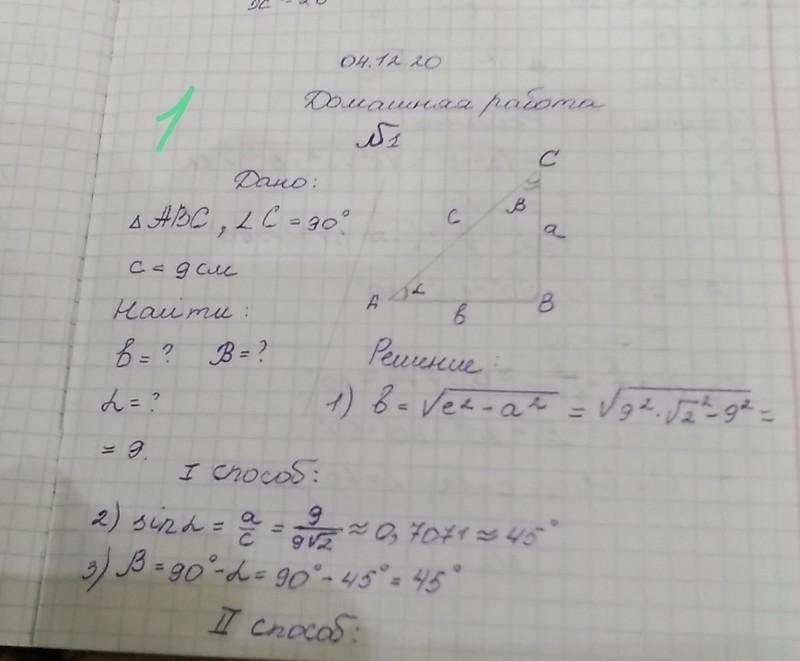 04.12 20
1
Домашняя работа
№1
Дано:
△ABC, ∠C = 90°.
c = 9 см
Найти:
b = ? β = ?
α = ?
C
c β a
A α b B
Решение:
1) b = √c² - a² = √9² · √2² - 9² =
= 9.
I способ:
2) sin α = a/c = 9/9√2 ≈ 0,7071 ≈ 45°
3) β = 90° - α = 90° - 45° = 45°
II способ: